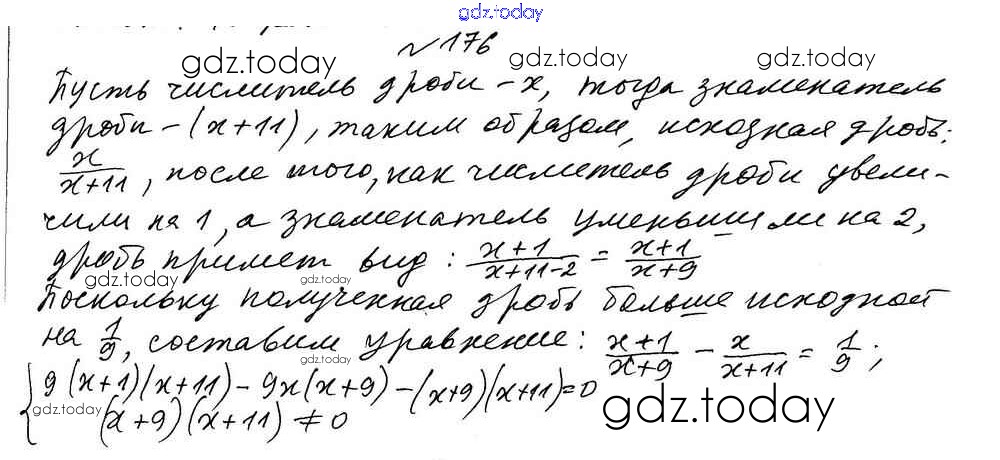 gdz.today
№176
gdz.today gdz.today gdz.today
Пусть числитель дроби – x, тогда знаменатель
дроби – (x+11), таким образом, исходная дробь:
x/(x+11), после того, как числитель дроби увели-
чили на 1, а знаменатель уменьшили на 2,
дробь примет вид: (x+1)/(x+11-2) = (x+1)/(x+9)
gdz.today gdz.today gdz.today
Поскольку полученная дробь больше исходной
на 1/9, составим уравнение: (x+1)/(x+9) – x/(x+11) = 1/9;
gdz.today
{9(x+1)(x+11) – 9x(x+9) – (x+9)(x+11)=0
(x+9)(x+11) ≠ 0
gdz.today gdz.today